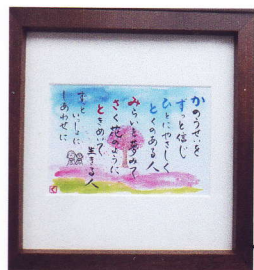 かのうせいを
ずっと信じ
ひとにやさしく
とくのある人
みらいを夢みて
さく花のように
ときめいて
生きる人
ずっといっしょに
しあわせに